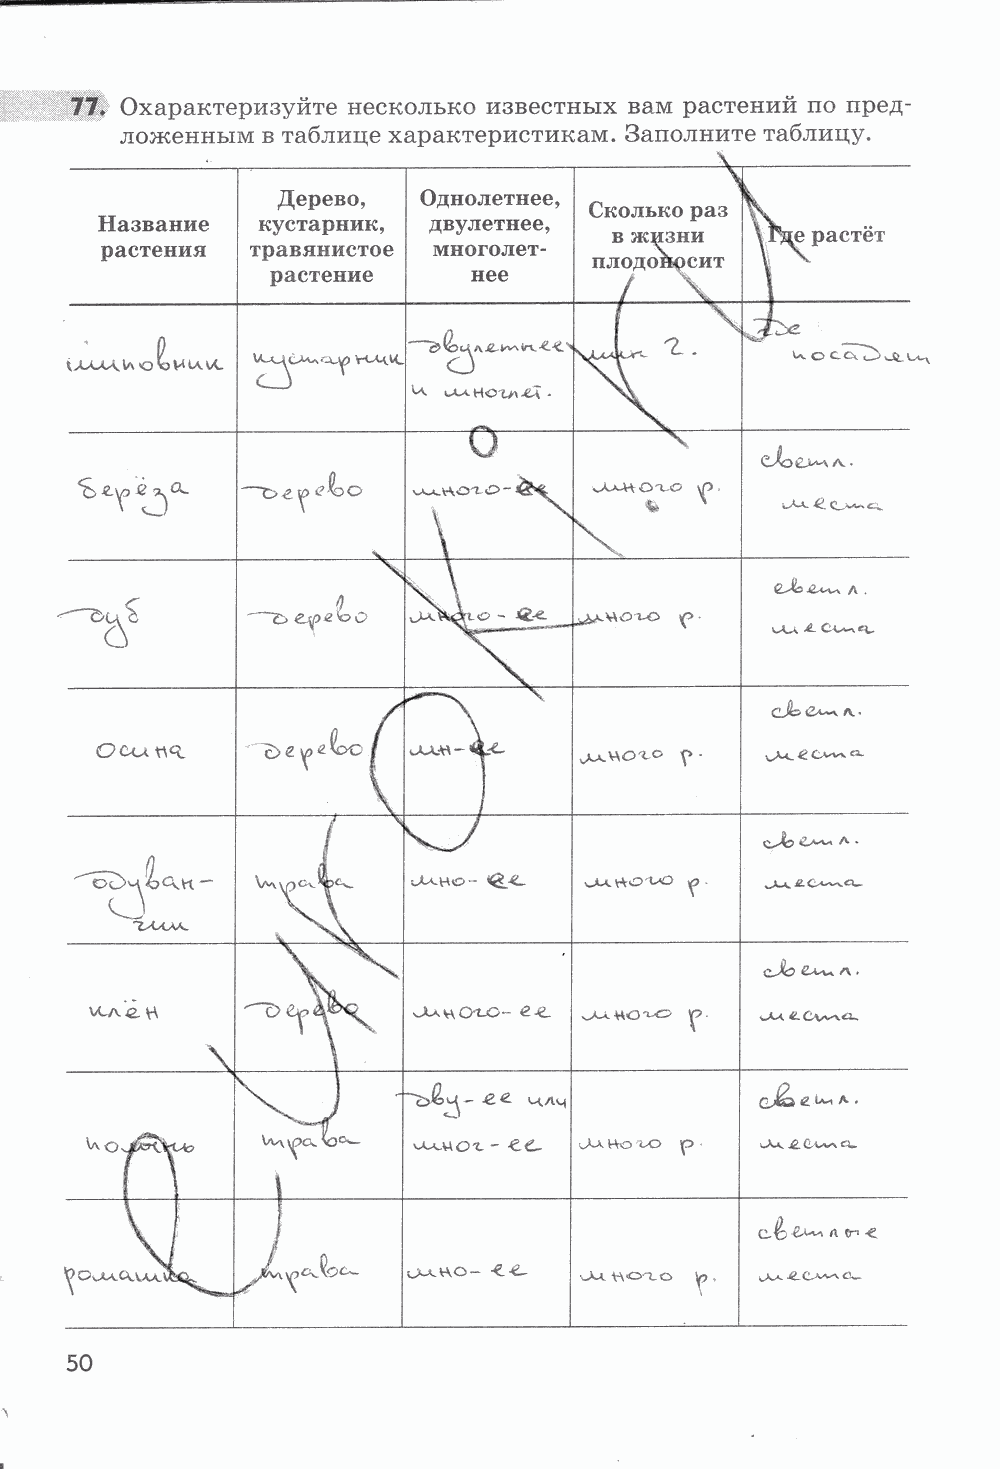 77. Охарактеризуйте несколько известных вам растений по пред-
ложенным в таблице характеристикам. Заполните таблицу.
Название
растения
Дерево,
кустарник,
травянистое
растение
Однолетнее,
двулетнее,
многолет-
нее
Сколько раз
в жизни
плодоносит
Где растёт
шиповник
кустарник
двулетнее
и многлет.
мин 2.
где
посадят
берёза
дерево
много-ее
много р.
светл.
места
дуб
дерево
много-ее
много р.
светл.
места
осина
дерево
мн-ее
много р.
светл.
места
одуван-
чик
трава
мно-ее
много р.
светл.
места
клён
дерево
много-ее
много р.
светл.
места
полынь
трава
дву-ее или
мног-ее
много р.
светл.
места
ромашка
трава
мно-ее
много р.
светлые
места
50